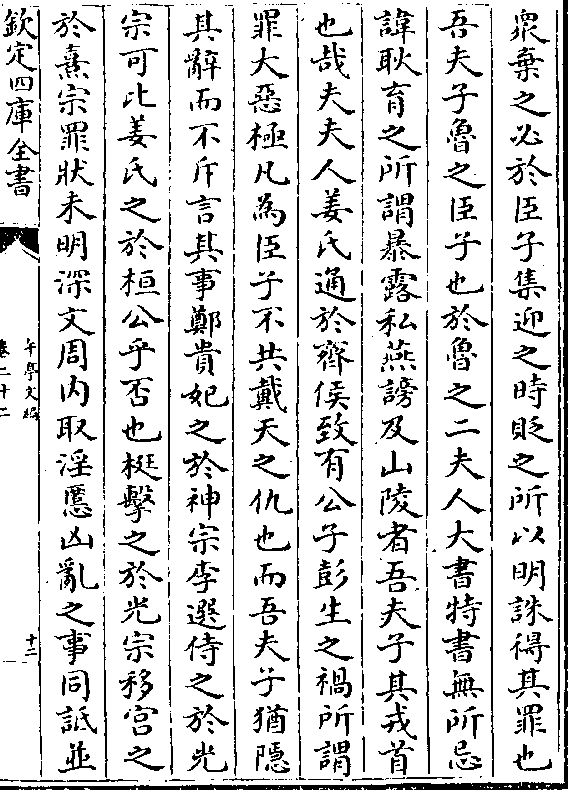 衆棄之必於臣子集迎之時貶之所以明誅得其罪也
吾夫子魯之臣子也於魯之二夫人大書特書無所忌
諱耿育之所謂暴露私燕謗及山陵者吾夫子其戎首
也哉夫夫人姜氏通於齊侯致有公子彭生之禍所謂
罪大惡極凡為臣子不共戴天之仇也而吾夫子猶隱
其辭而不斥言其事鄭貴妃之於神宗李選侍之於光
宗可比姜氏之於桓公乎否也梃擊之於光宗移宮之
於熹宗罪狀未明深文周内取淫慝凶亂之事同詆並
欽定四庫全書
午亭文編
卷二十二
十二